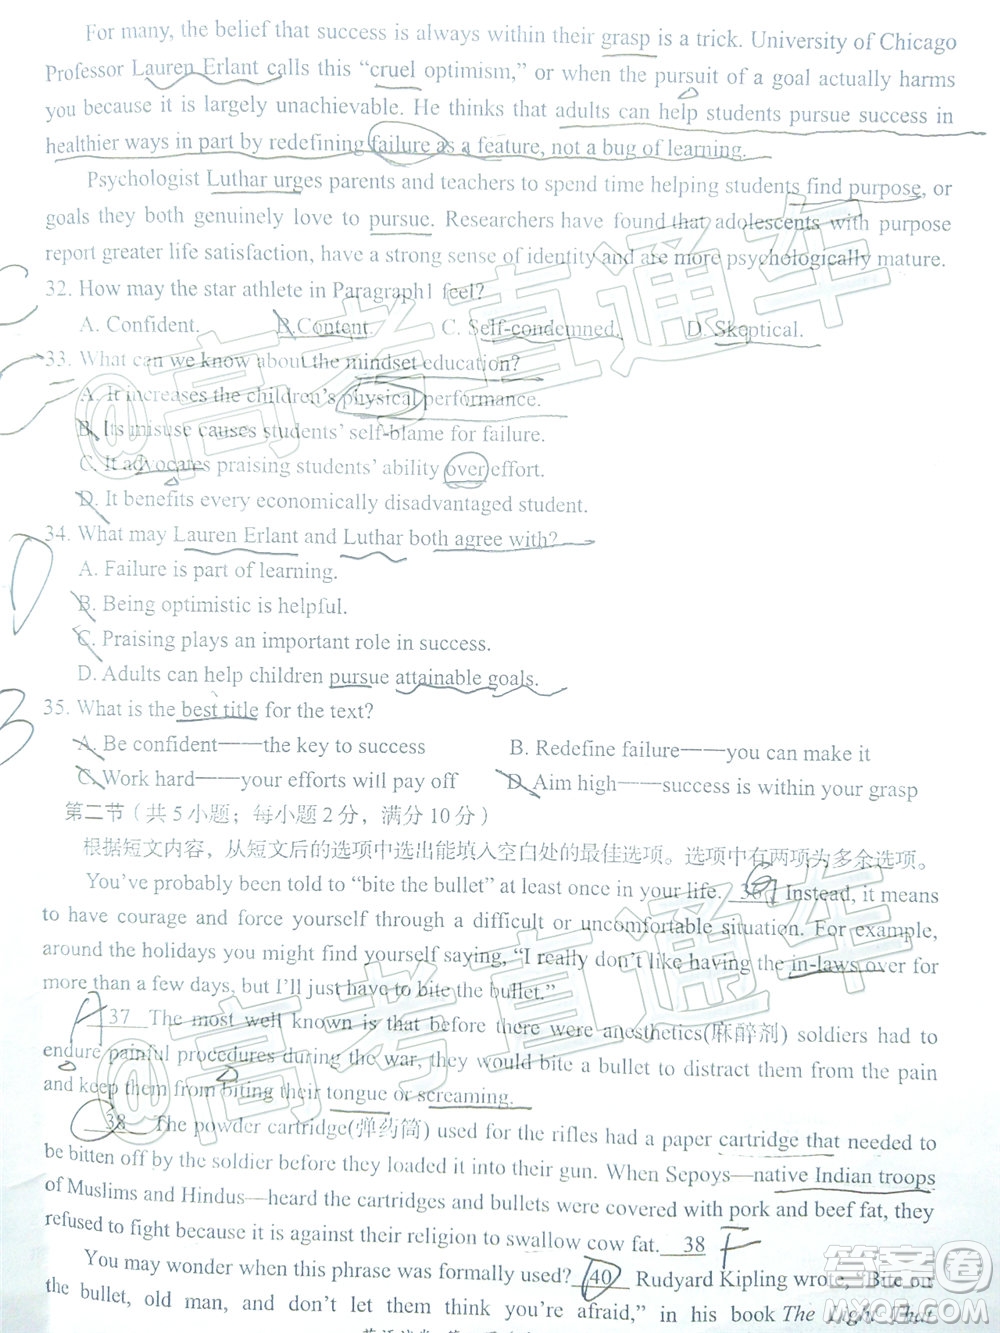 For many, the belief that success is always within their grasp is a trick. University of Chicago
Professor Lauren Erlant calls this “cruel optimism,” or when the pursuit of a goal actually harms
you because it is largely unachievable. He thinks that adults can help students pursue success in
healthier ways in part by redefining failure as a feature, not a bug of learning.
Psychologist Luthar urges parents and teachers to spend time helping students find purpose, or
goals they both genuinely love to pursue. Researchers have found that adolescents with purpose
report greater life satisfaction, have a strong sense of identity and are more psychologically mature.
32. How may the star athlete in Paragraph1 feel?
A. Confident. B. Content. C. Self-condemned. D. Skeptical.
33. What can we know about the mindset education?
A. It increases the children’s physical performance.
B. Its misuse causes students’ self-blame for failure.
C. It advocates praising students’ ability over effort.
D. It benefits every economically disadvantaged student.
34. What may Lauren Erlant and Luthar both agree with?
A. Failure is part of learning.
B. Being optimistic is helpful.
C. Praising plays an important role in success.
D. Adults can help children pursue attainable goals.
35. What is the best title for the text?
A. Be confident——the key to success B. Redefine failure——you can make it
C. Work hard——your efforts will pay off D. Aim high——success is within your grasp
第二节（共5小题；每小题2分，满分10分）
根据短文内容，从短文后的选项中选出能填入空白处的最佳选项。选项中有两项为多余选项。
You’ve probably been told to “bite the bullet” at least once in your life. 36 Instead, it means
to have courage and force yourself through a difficult or uncomfortable situation. For example,
around the holidays you might find yourself saying, “I really don’t like having the in-laws over for
more than a few days, but I’ll just have to bite the bullet.”
37 The most well known is that before there were anesthetics(麻醉剂) soldiers had to
endure painful procedures during the war, they would bite a bullet to distract them from the pain
and keep them from biting their tongue or screaming.
38 The powder cartridge(弹药筒) used for the rifles had a paper cartridge that needed to
be bitten off by the soldier before they loaded it into their gun. When Sepoys—native Indian troops
of Muslims and Hindus—heard the cartridges and bullets were covered with pork and beef fat, they
refused to fight because it is against their religion to swallow cow fat. 38 F
You may wonder when this phrase was formally used? 40 Rudyard Kipling wrote, “Bite on
the bullet, old man, and don’t let them think you’re afraid,” in his book The Light That
@高考直通车
@高考直通车
答案圈
MXQE.COM